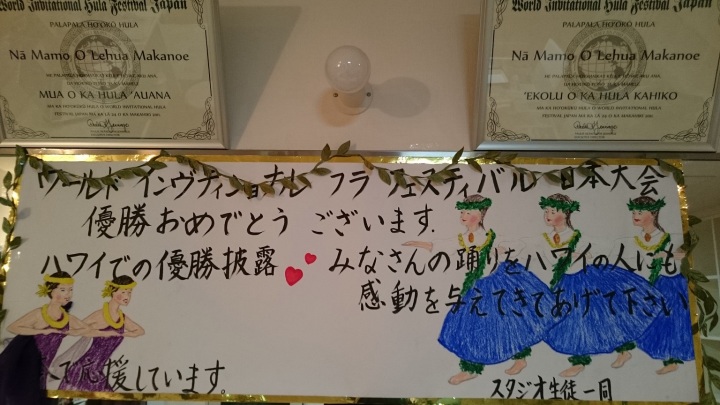 World Invitational Hula Festival Japan
PALAPALA HO'OKŌ HULA
Nā Mamo O Lehua Makanoe
MUA O KA HULA 'AUANA
World Invitational Hula Festival Japan
PALAPALA HO'OKŌ HULA
Nā Mamo O Lehua Makanoe
'EKOLU O KA HULA KAHIKO
ワールド インヴティショナル フラ フェスティバル 日本大会
優勝おめでとう ございます.
ハワイでの優勝披露 みなさんの踊りをハワイの人にも
感動を与えてきてあげて下さい
で応援しています。
スタジオ生徒一同